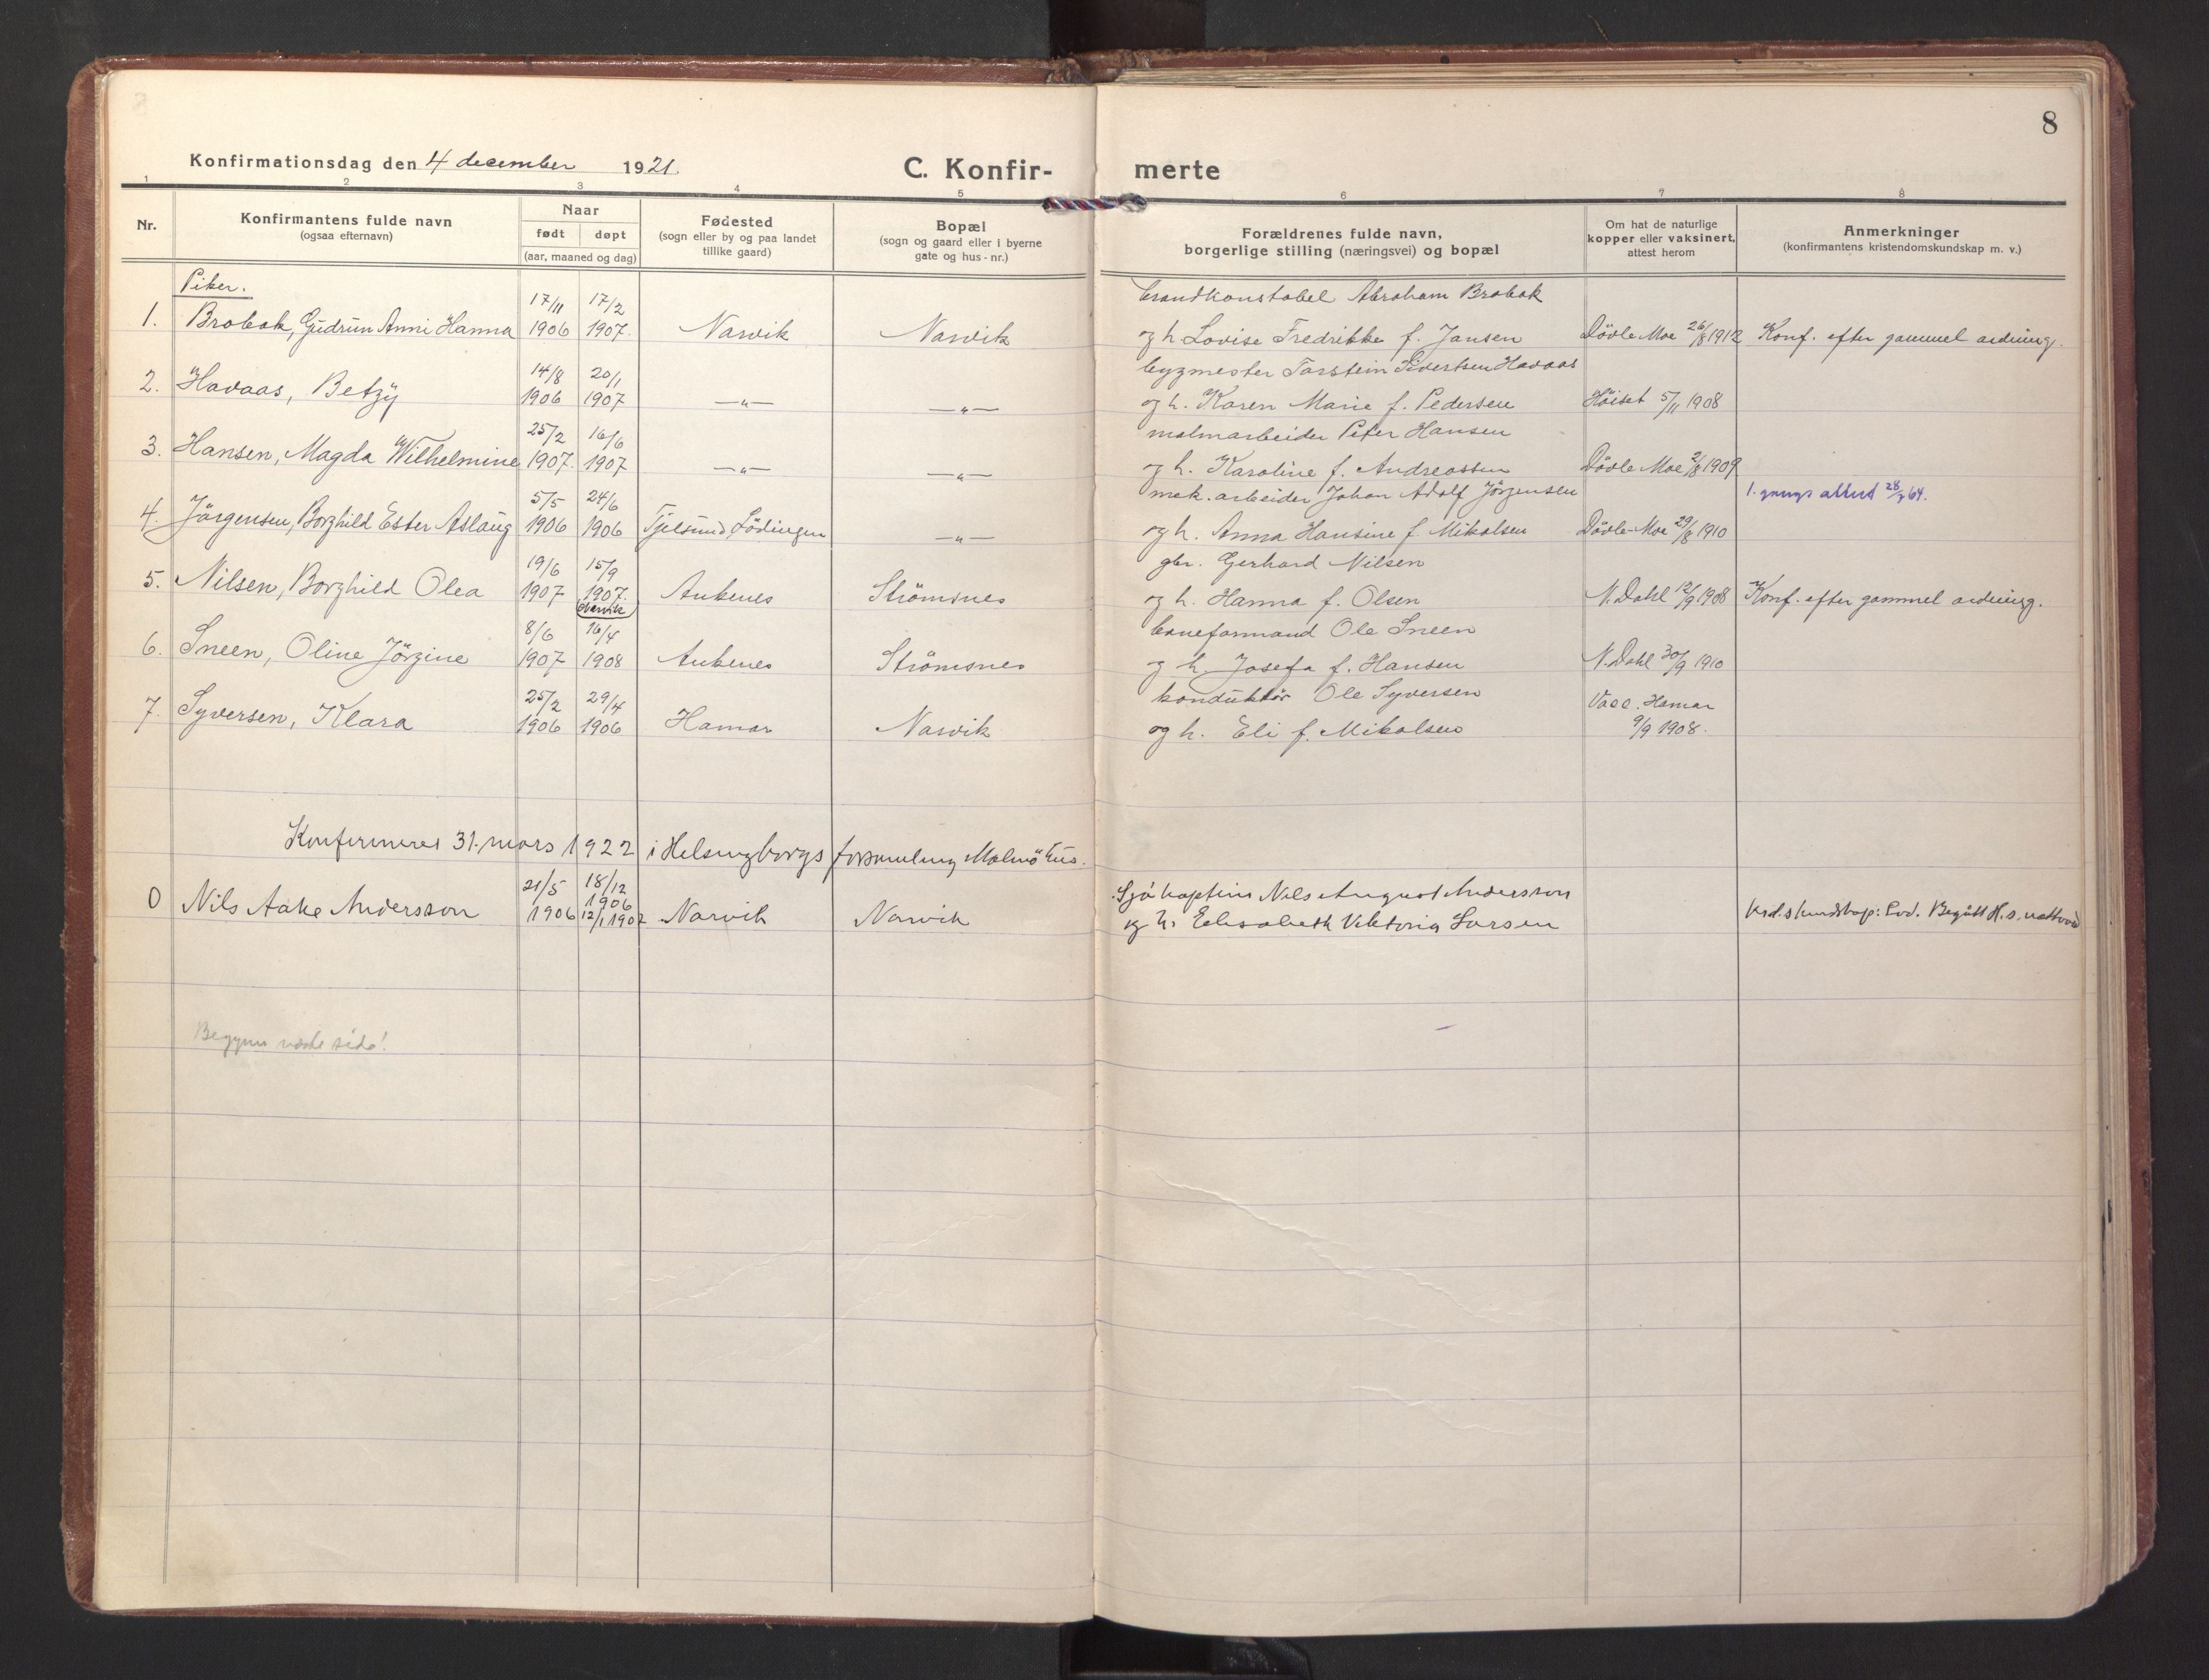 8
Konfirmationsdag den 4 december 1921.
C. Konfir- merte
1 2 3 4 5 6 7 8
Nr.
Konfirmantens fulde navn
(ogsaa efternavn)
Naar
født døpt
(aar, maaned og dag)
Fødested
(sogn eller by og paa landet
tillike gaard)
Bopæl
(sogn og gaard eller i byerne
gate og hus-nr.)
Forældrenes fulde navn,
borgerlige stilling (næringsvei) og bopæl
Om hat de naturlige
kopper eller vaksinert,
attest herom
Anmerkninger
(konfirmantens kristendomskundskap m. v.)
Piker.
17/11 17/2 brandkonstabel Abraham Brobak
1. Brobak, Gudrun Anni Hanna 1906 1907. Narvik Narvik og h. Lovise Fredrikke f. Jansen Dövle Moe 26/8 1912 Konf. efter gammel ordning.
14/8 20/1 bygmester Torstein Sivertsen Havaas
2. Havaas, Betzy 1906 1907 —"— —"— og h. Karen Marie f. Pedersen Höiset 5/11 1908
25/2 16/6 malmarbeider Peter Hansen
3. Hansen, Magda Wilhelmine 1907. 1907 —"— —"— og h. Karoline f. Andreassen Dövle Moe 2/8 1909
5/5 24/6 mek. arbeider Johan Adolf Jörgensen 1. gangs attest
4. Jörgensen, Borghild Ester Aslaug 1906 1906 Tjelsund, Lödingen —"— og h. Anna Hansine f. Mikalsen Dövle-Moe 29/8 1910
19/6 15/9 gbr. Gerhard Nilsen
5. Nilsen, Borghild Olea 1907 1907. Ankenes Strömsnes og h. Hanna f. Olsen N. Dahl 12/9 1908 Konf. efter gammel ordning.
(Narvik)
8/6 16/4 baneformand Ole Sneen
6. Sneen, Oline Jörgine 1907 1908 Ankenes Strömsnes og h. Josefa f. Hansen N. Dahl 30/9 1910
25/2 29/4 konduktör Ole Syversen Vacc. Hamar
7. Syversen, Klara 1906 1906 Hamar Narvik og h. Eli f. Mikalsen 9/9 1908.
Konfirmeres 31. mars 1922 i Helsingborgs forsamling Malmö hus.
21/5 18/12 1906 Sjökaptein Nils August Andersson
0 Nils Aake Andersson 1906 12/1 1907 Narvik Narvik og h. Elisabeth Viktoria Larsen krd.s kundskap: God. Begått H. s. nattvard
Begynn næste side!